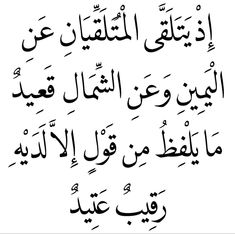 إِذْ يَتَلَقَّى الْمُتَلَقِّيَانِ عَنِ
الْيَمِينِ وَعَنِ الشِّمَالِ قَعِيدٌ
مَا يَلْفِظُ مِن قَوْلٍ إِلاَّ لَدَيْهِ
رَقِيبٌ عَتِيدٌ